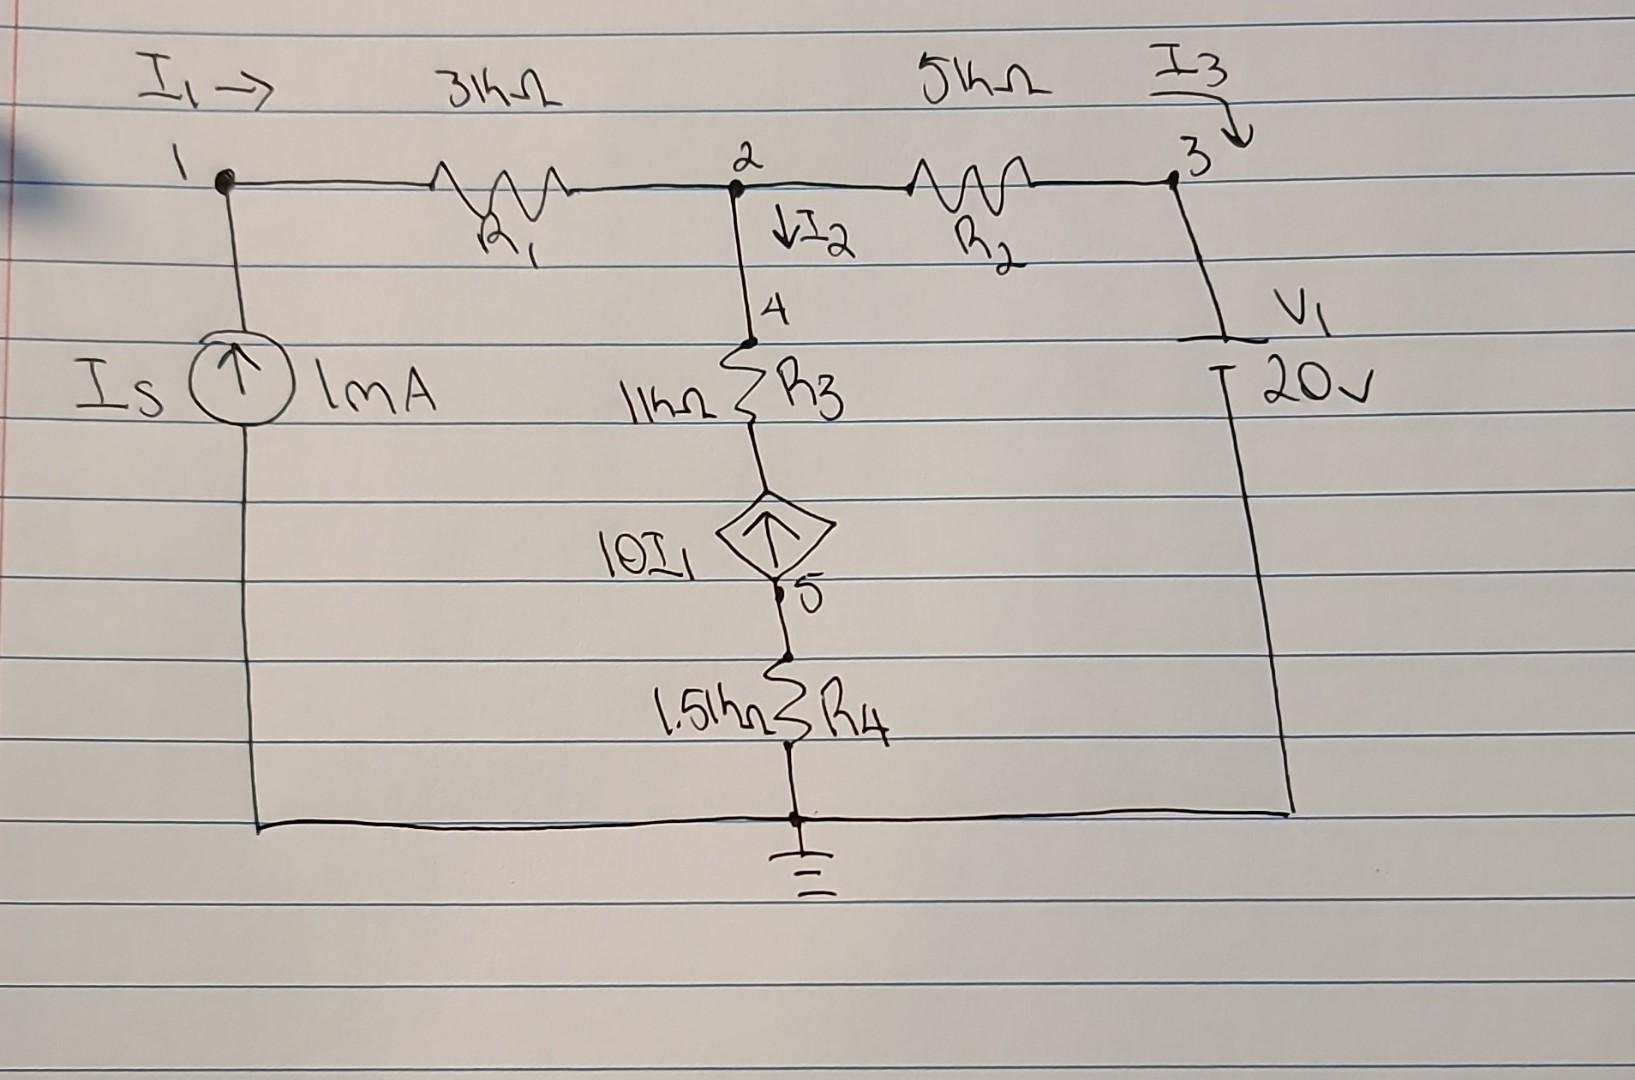 I₁ → 3kΩ 5kΩ I₃
1 2 3
R₁ ↓I₂ R₂
4 V₁
Is 1mA 1kΩ R₃ 20v
10I₁
5
1.5kΩ R₄